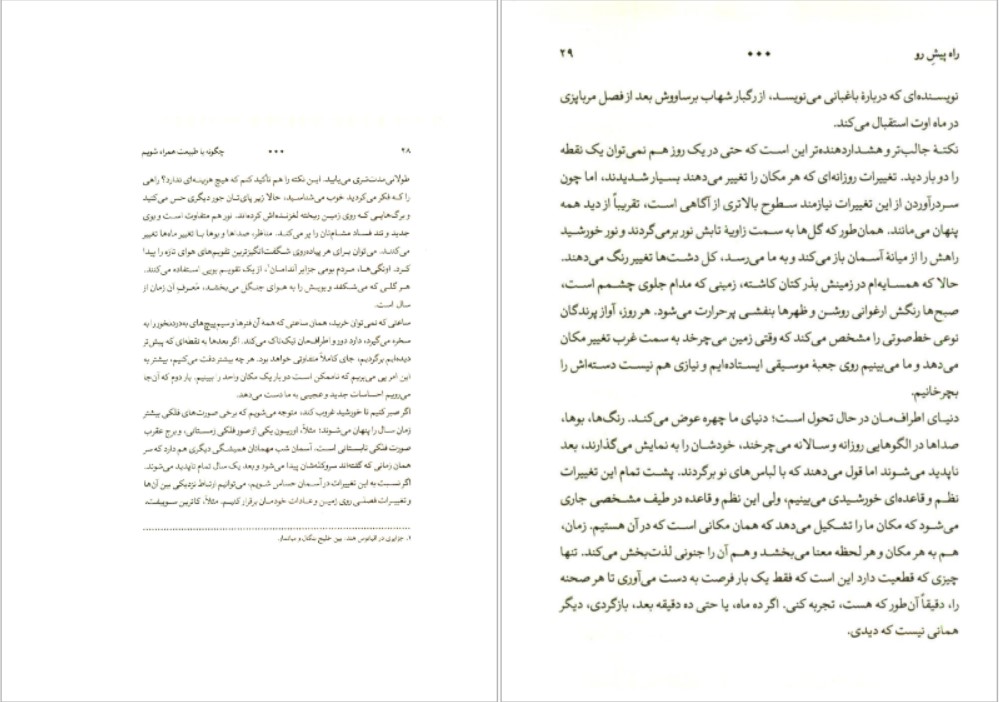 ۲۸ ••• چگونه با طبیعت همراه شویم
طولانی‌مدت‌تری می‌یابید. این نکته را هم تأکید کنم که هیچ هزینه‌ای ندارد؟ راهی
را که فکر می‌کردید خوب می‌شناسید، حالا زیر پای‌تان جور دیگری حس می‌کنید
و برگ‌هایی که روی زمین ریخته لغزنده‌اش کرده‌اند. نور هم متفاوت است و بوی
جدید و تند فساد مشام‌تان را پر می‌کند. مناظر، صداها و بوها با تغییر ماه‌ها تغییر
می‌کنند. می‌توان برای هر پیاده‌روی شگفت‌انگیزترین تقویم‌های هوای تازه را پیدا
کرد. اونگی‌ها، مردم بومی جزایر آندامان۱، از یک تقویم بویی استفاده می‌کنند.
هر گلی که می‌شکفد و بویش را به هوای جنگل می‌بخشد، مُعرف آن زمان از
سال است.
ساعتی که نمی‌توان خرید، همان ساعتی که همهٔ آن فنرها و سیم‌پیچ‌های به‌دردنخور را به
سخره می‌گیرد، دارد دور و اطراف‌مان تیک‌تاک می‌کند. اگر بعدها به نقطه‌ای که پیش‌تر
دیده‌ایم برگردیم، جای کاملاً متفاوتی خواهد بود. هر چه بیشتر دقت می‌کنیم، بیشتر به
این امر پی می‌بریم که ناممکن است دو بار یک مکان واحد را ببینیم. بار دوم که آن‌جا
می‌رویم احساسات جدید و عجیبی به ما دست می‌دهد.
اگر صبر کنیم تا خورشید غروب کند، متوجه می‌شویم که برخی صورت‌های فلکی بیشتر
زمان سال را پنهان می‌شوند؛ مثلاً، اوریون یکی از صور فلکی زمستانی، و برج عقرب
صورت فلکی تابستانی است. آسمان شب مهمانان همیشگی دیگری هم دارد که سر
همان زمانی که گفته‌اند سروکله‌شان پیدا می‌شود و بعد یک سال تمام ناپدید می‌شوند.
اگر نسبت به این تغییرات در آسمان حساس شویم، می‌توانیم ارتباط نزدیکی بین آن‌ها
و تغییرات فصلی روی زمین و عادات خودمان برقرار کنیم. مثلاً، کاترین سوییفت،
۱. جزایری در اقیانوس هند: بین خلیج بنگال و میانمار.
راه پیشِ رو ••• ۲۹
نویسنده‌ای که دربارهٔ باغبانی می‌نویسد، از رگبار شهاب برساووش بعد از فصل مرباپزی
در ماه اوت استقبال می‌کند.
نکتهٔ جالب‌تر و هشداردهنده‌تر این است که حتی در یک روز هم نمی‌توان یک نقطه
را دو بار دید. تغییرات روزانه‌ای که هر مکان را تغییر می‌دهند بسیار شدیدند، اما چون
سر درآوردن از این تغییرات نیازمند سطوح بالاتری از آگاهی است، تقریباً از دید همه
پنهان می‌مانند. همان‌طور که گل‌ها به سمت زاویهٔ تابش نور برمی‌گردند و نور خورشید
راهش را از میانهٔ آسمان باز می‌کند و به ما می‌رسد، کل دشت‌ها تغییر رنگ می‌دهند.
حالا که همسایه‌ام در زمینش بذر کتان کاشته، زمینی که مدام جلوی چشمم است،
صبح‌ها رنگش ارغوانی روشن و ظهرها بنفشی پرحرارت می‌شود. هر روز، آواز پرندگان
نوعی خط‌صوتی را مشخص می‌کند که وقتی زمین می‌چرخد به سمت غرب تغییر مکان
می‌دهد و ما می‌بینیم روی جعبهٔ موسیقی ایستاده‌ایم و نیازی هم نیست دسته‌اش را
بچرخانیم.
دنیای اطراف‌مان در حال تحول است؛ دنیای ما چهره عوض می‌کند. رنگ‌ها، بوها،
صداها در الگوهایی روزانه و سالانه می‌چرخند، خودشان را به نمایش می‌گذارند، بعد
ناپدید می‌شوند اما قول می‌دهند که با لباس‌های نو برگردند. پشت تمام این تغییرات
نظم و قاعده‌ای خورشیدی می‌بینیم، ولی این نظم و قاعده در طیف مشخصی جاری
می‌شود که مکان ما را تشکیل می‌دهد که همان مکانی است که در آن هستیم. زمان،
هم به هر مکان و هر لحظه معنا می‌بخشد و هم آن را جنونی لذت‌بخش می‌کند. تنها
چیزی که قطعیت دارد این است که فقط یک بار فرصت به دست می‌آوری تا هر صحنه
را، دقیقاً آن‌طور که هست، تجربه کنی. اگر ده ماه، یا حتی ده دقیقه بعد، بازگردی، دیگر
همانی نیست که دیدی.